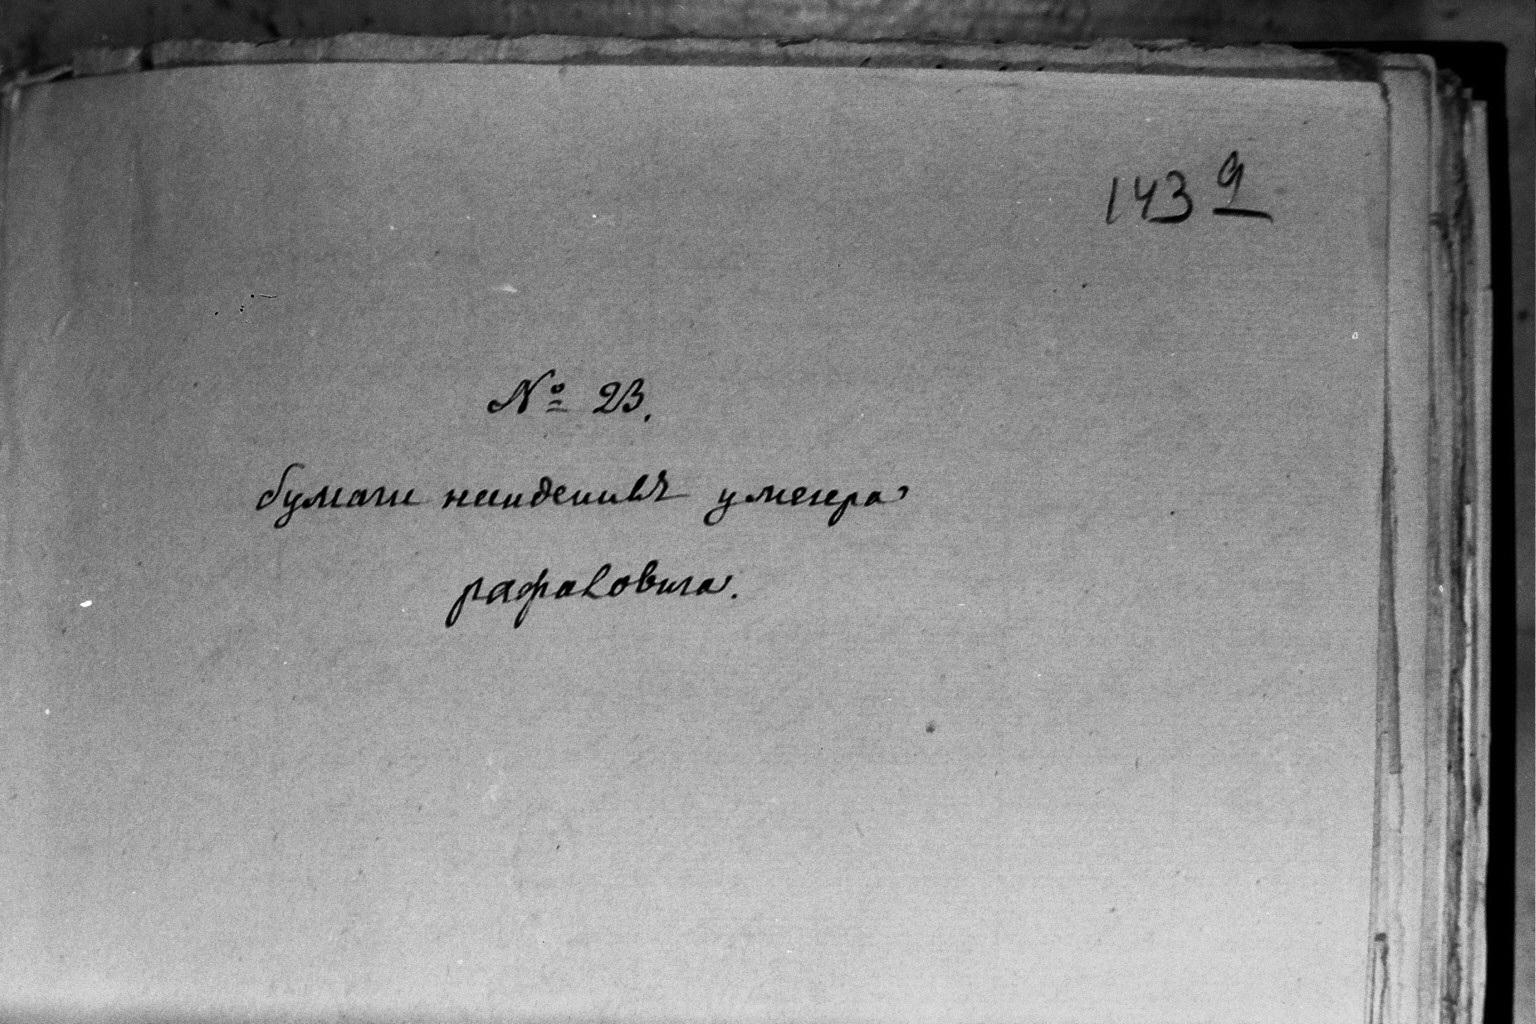 143 9
№ 23.
бумаги наиденивъ у меира
рафаловича.